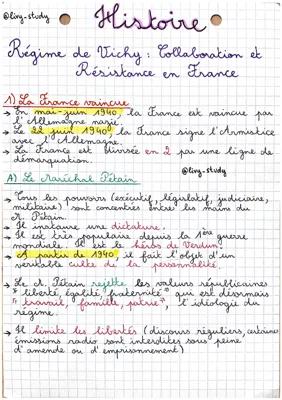 @ling-study
Histoire
Régime de Vichy : Collaboration et
Résistance en France
1) La France vaincue
→ En mai-juin 1940, la France est vaincue par
l'Allemagne nazie.
→ Le 22 juin 1940, la France signe l'Armistice
avec l'Allemagne.
→ La France est divisée en 2 par une ligne de
démarquation.
@ling-study
A) Le Maréchal Pétain
→ Tous les pouvoirs (exécutif, législatif, judiciaire,
militaire) sont concentrés entre les mains du
M. Pétain.
→ Il instaure une dictature.
→ Il est très populaire depuis la 1ère guerre
mondiale. Il est le héros de Verdun.
→ A partir de 1940, il fait l'objet d'un
véritable culte de la personnalité.
→ Le M. Pétain rejette les valeurs républicaines
"liberté, égalité, fraternité" qui est désormais
"travail, famille, patrie", l'idéologie du
régime.
→ Il limite les libertés (discours réguliers, certaines
émissions radio sont interdites sous peine
d'amende ou d'emprisonnement)